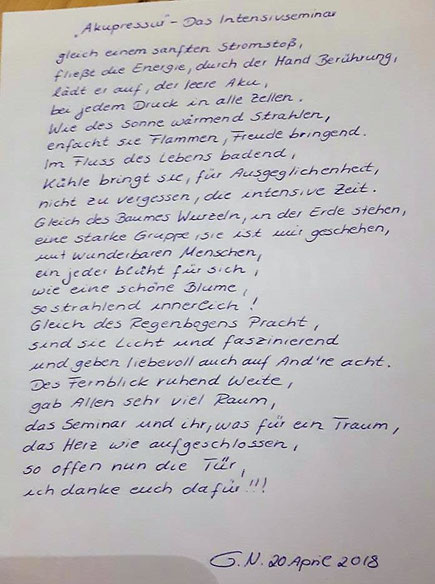 „Akupressur" - Das Intensivseminar
gleich einem sanften Stromstoß,
fließt die Energie, durch der Hand Berührung,
lädt er auf, der leere Aku,
bei jedem Druck in alle Zellen.
Wie des Sonne wärmend Strahlen,
entfacht sie Flammen, Freude bringend.
Im Fluss des Lebens badend,
Kühle bringt sie, für Ausgeglichenheit,
nicht zu vergessen, die intensive Zeit.
Gleich des Baumes Wurzeln, in der Erde stehen,
eine starke Gruppe, sie ist mir geschehen,
mit wunderbaren Menschen,
ein jeder blüht für sich,
wie eine schöne Blume,
so strahlend innerlich!
Gleich des Regenbogens Pracht,
sind sie Licht und faszinierend
und geben liebevoll auch auf And're acht.
Des Fernblick ruhend Weite,
gab Allen sehr viel Raum,
das Seminar und ihr, was für ein Traum,
das Herz wie aufgeschlossen,
so offen nun die Tür,
ich danke euch dafür!!!
G.N. 20 April 2018